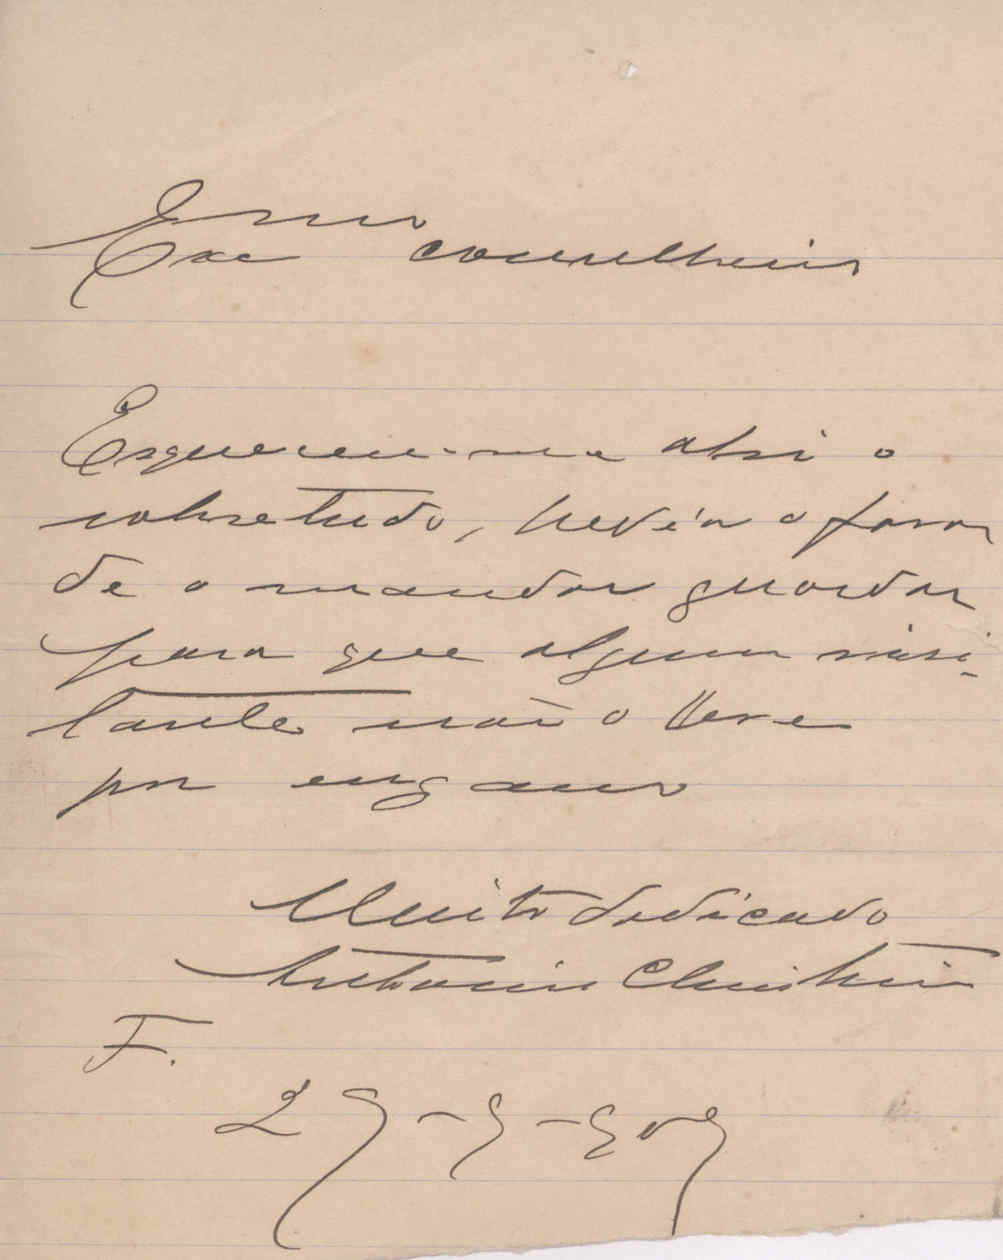 Exmo
Conselheiro
Esqueceu-me ahi o
sobretudo, devéa o favor
de o mandar guardar
para que algum visi-
tante não o leve
por engano
Muito dedicado
Antonio
F.